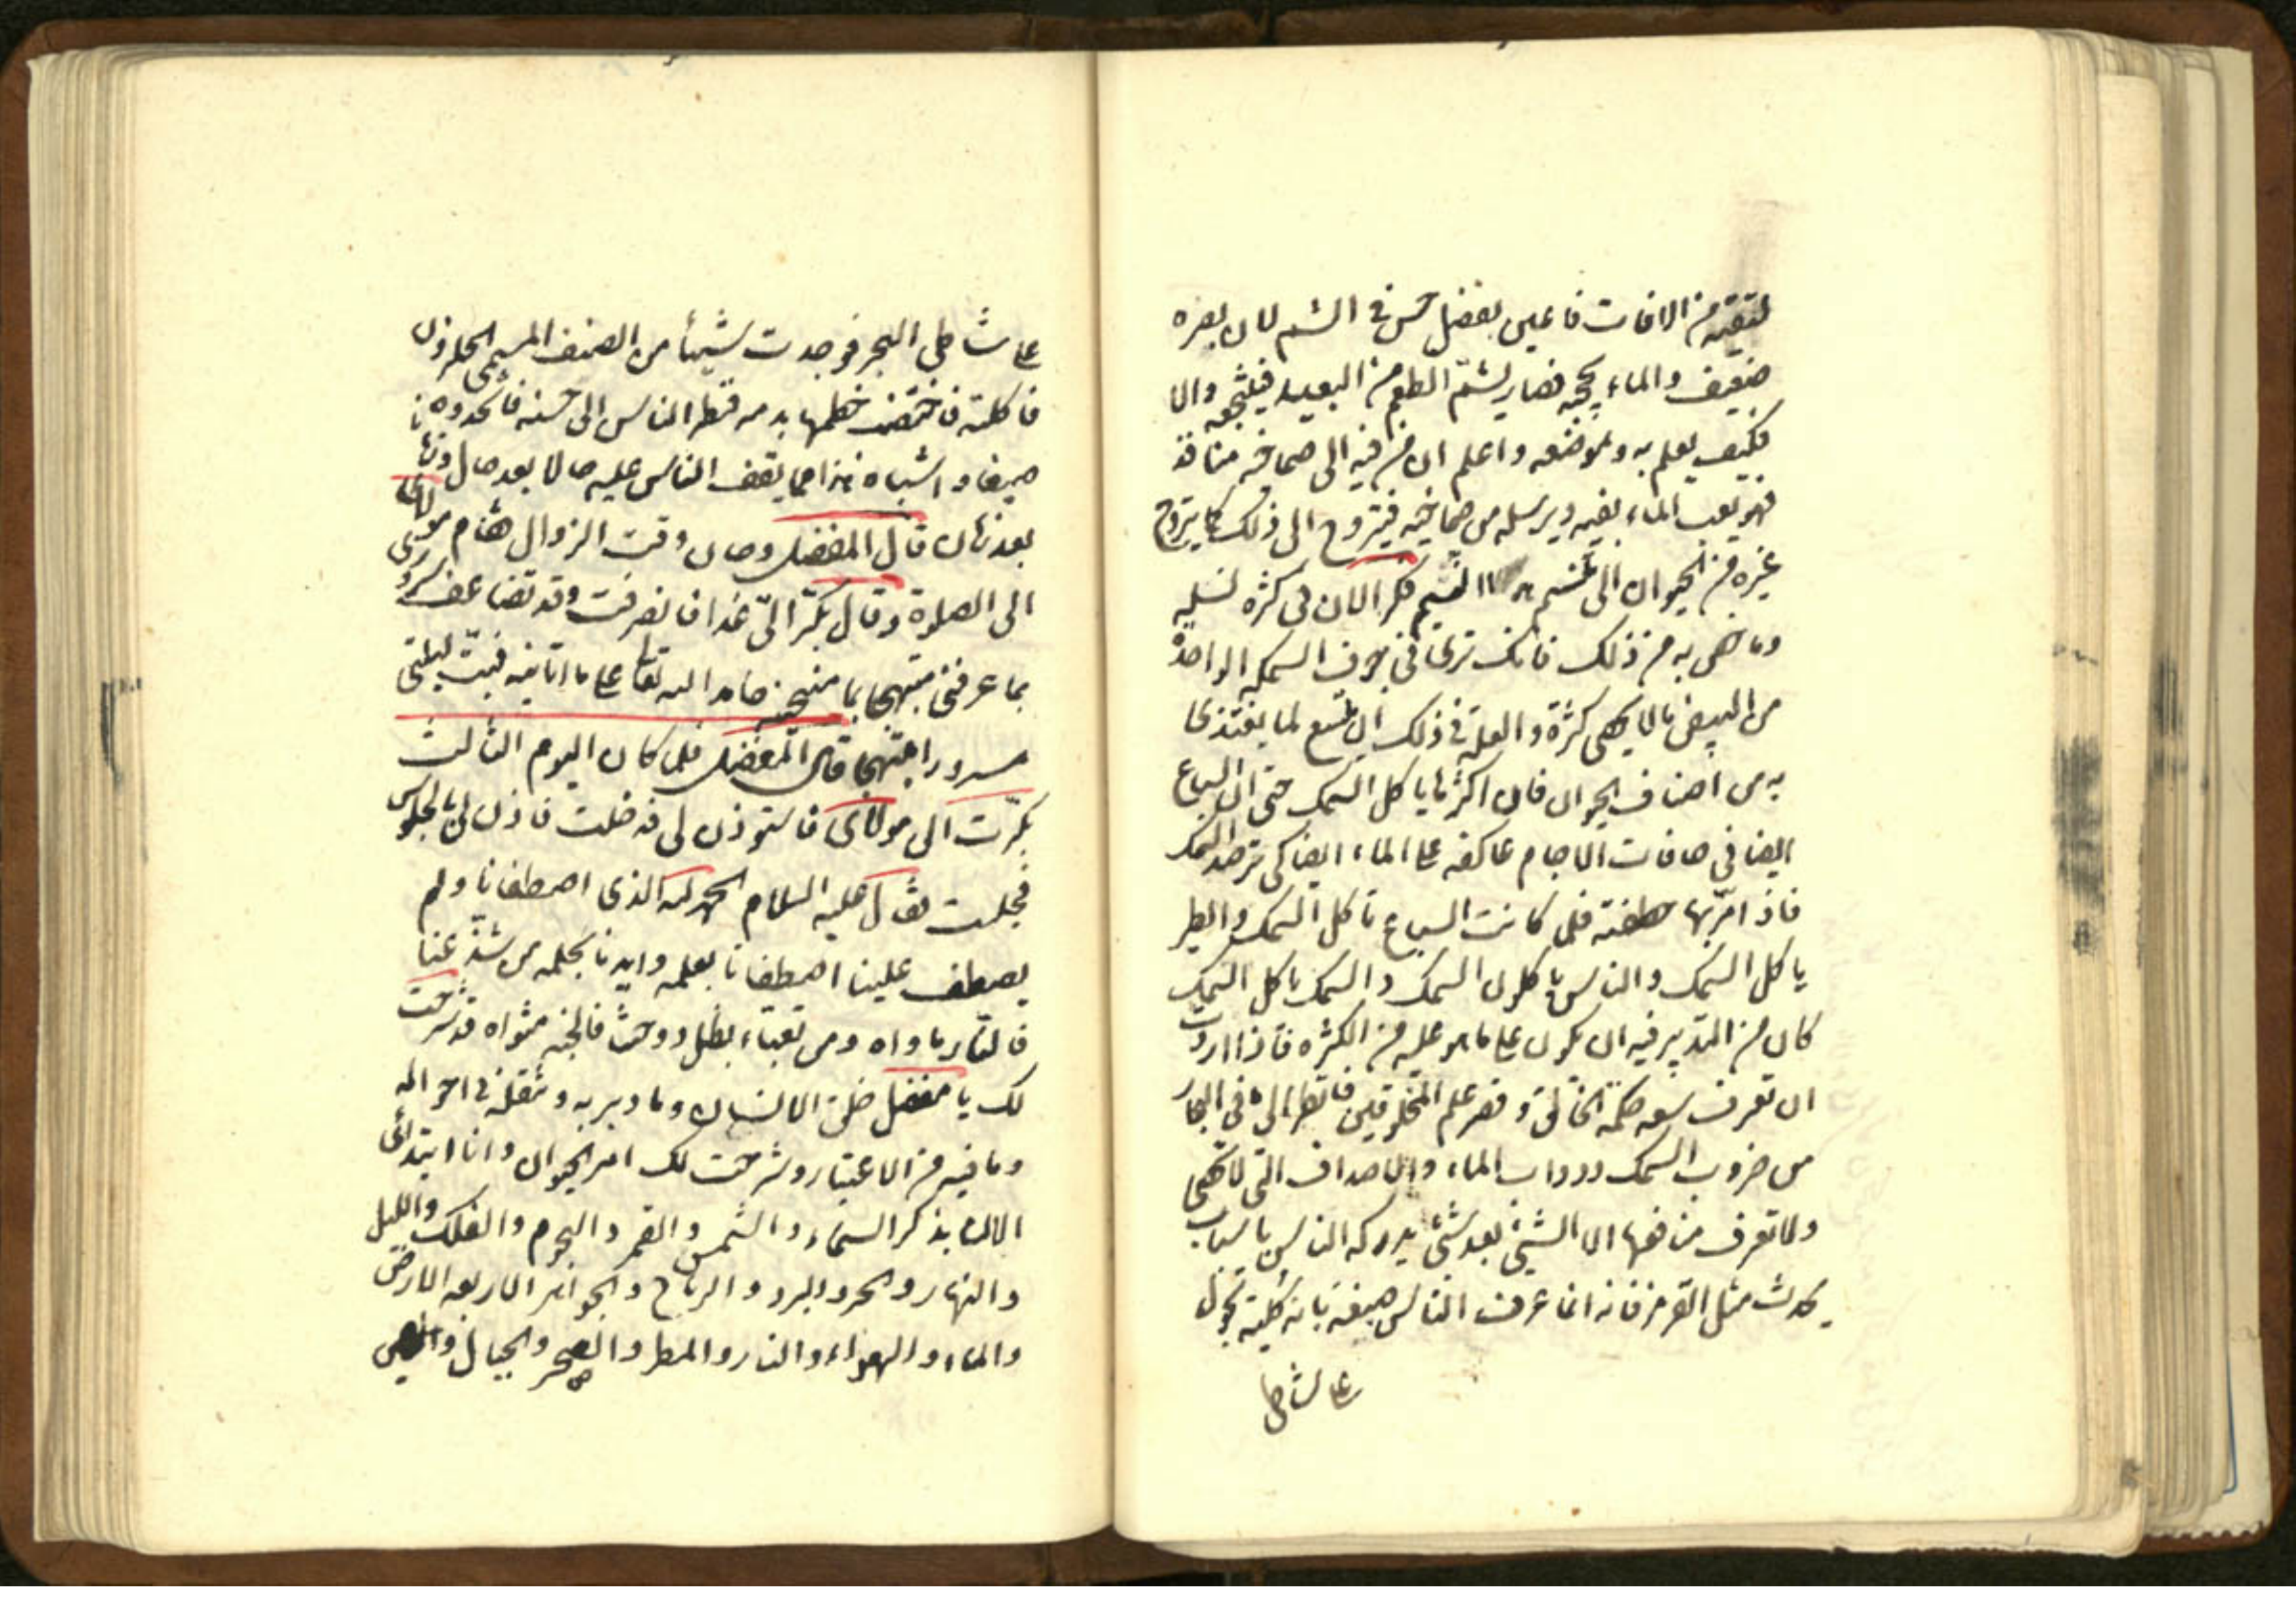 لتقيه من الافات فاعين بفضل حس في الشم لان بصره
ضعيف والماء يحجبه فصار يشم الطعم من البعيد فينتجعه والا
فكيف يعلم به وبموضعه واعلم ان من فيه الى صماخيه منافذ
فهو يعب الماء بفيه ويرسله من صماخيه فيتروح الى ذلك كما يتروح
غيره من الحيوان الى تنسم النسيم فكر الان في كثرة نسله
وما خص به من ذلك فانك ترى في جوف السمكه الواحدة
من البيض مالا يحصى كثرة والعلة في ذلك ان يتسع لما يغتذى
به من اصناف الحيوان فان اكثرها ياكل السمك حتى ان السباع
ايضا في حافات الاجام عاكفه على الماء ايضا كى ترصد السمك
فاذا مر بها خطفته فلما كانت السباع تاكل السمك والطير
ياكل السمك والناس ياكلون السمك والسمك ياكل السمك
كان من التدبير فيه ان يكون على ما هو عليه من الكثره فاذا اردت
ان تعرف سعه حكمة الخالق وقصر علم المخلوقين فانظر الى ما فى البحار
من ضروب السمك ودواب الماء والاصداف التى لا تحصى
ولا تعرف منافعها الا الشيئ بعد شئ يدركه الناس باسباب
يحدث مثل القرمز فانه انما عرف الناس صبغه بان كلبة تجول
على شاطى
على شاطى البحر فوجدت شيئا من الصنف المسمى الحلزون
فاكلته فاختضب خطمها بدمه فنظر الناس الى حسنه فاتخدوه
صبغا واشباه هذا مما يقف الناس عليه حالا بعد حال وزمانا
بعد زمان قال المفضل وحان وقت الزوال فقام مولاى
الى الصلوة وقال بكر الىّ غدا فانصرفت وقد تضاعف سرورى
بما عرفنى مبتهجا بما منحنيه حامدا لله تعالى على ما اتانيه فبت ليلتى
مسرورا مبتهجا قال المفضل فلما كان اليوم الثالث
بكرت الى مولاى فاستوذن لى فدخلت فاذن لى بالجلوس
فجلست فقال عليه السلام الحمد لله الذى اصطفانا ولم
يصطف علينا اصطفانا بعلمه وايدنا بحلمه من شذ عنا
فالنار ماواه ومن تفياء بظل دوحتنا فالجنة مثواه قد شرحت
لك يا مفضل خلق الانسان وما دبر به وتنقله في احواله
وما فيه من الاعتبار وشرحت لك امر الحيوان وانا ابتدائ
الان بذكر السماء والشمس والقمر والنجوم والفلك والليل
والنهار والحر والبرد والرياح والجواهر الاربعه الارض
والماء والهواء والنار والمطر والصخر والجبال والطين